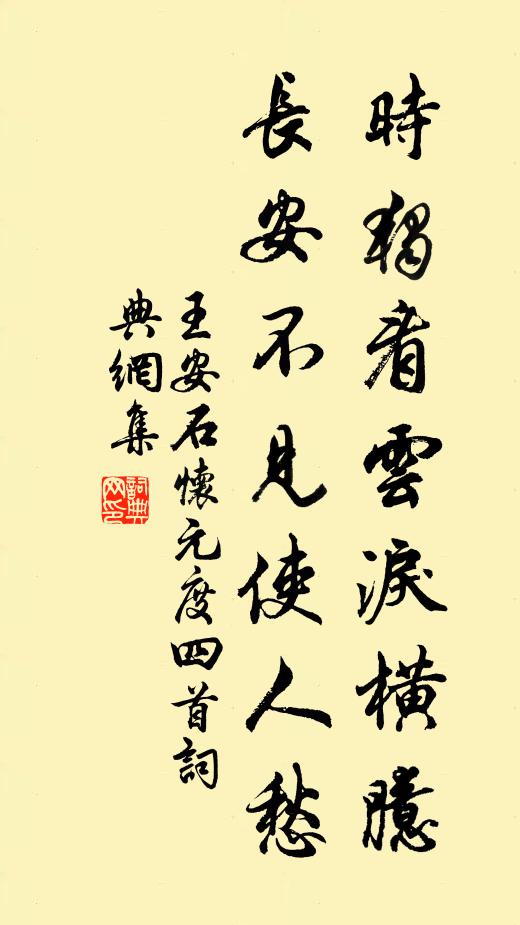 時獨看雲淚橫臆
長安不見使人愁
王安石懷元度四首詞
典網集
詞典
网印